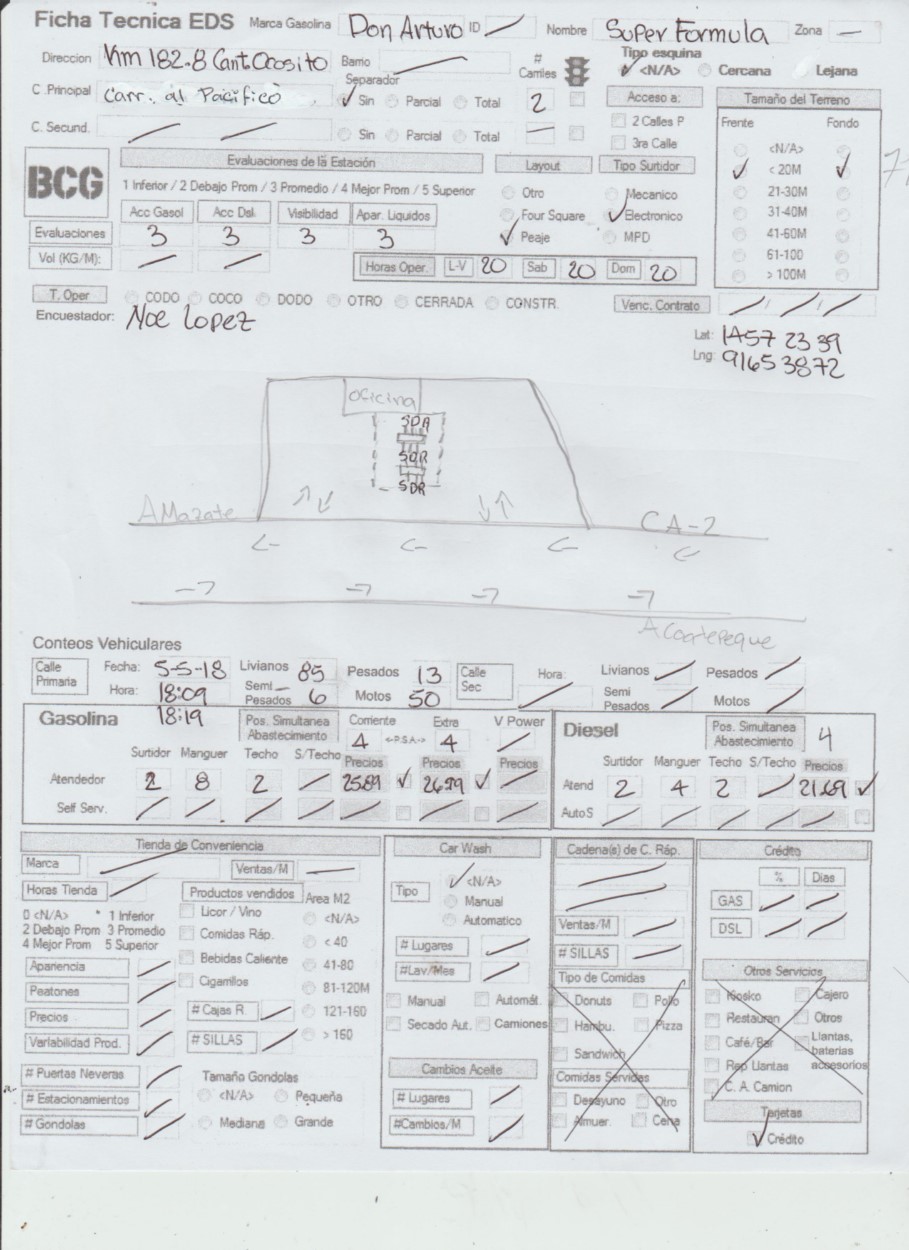 Ficha Tecnica EDS Marca Gasolina Don Arturo ID Nombre Super Formula Zona
Direccion Km 182.8 Cant. Ocosito Barrio # Carriles Tipo esquina
<N/A> Cercana Lejana
C .Principal Carr. al Pacifico Separador Sin Parcial Total 2 Acceso a: Tamaño del Terreno
C. Secund. Sin Parcial Total 2 Calles P Frente Fondo
3ra Calle <N/A>
BCG Evaluaciones de la Estación Layout Tipo Surtidor < 20M
1 Inferior / 2 Debajo Prom / 3 Promedio / 4 Mejor Prom / 5 Superior Otro Mecanico 21-30M
Acc Gasol Acc Dsl. Visibilidad Apar. Liquidos Four Square Electronico 31-40M
Evaluaciones 3 3 3 3 Peaje MPD 41-60M
Vol (KG/M): Horas Oper. L-V 20 Sab 20 Dom 20 61-100
> 100M
T. Oper CODO COCO DODO OTRO CERRADA CONSTR. Venc. Contrato
Encuestador: Noe Lopez
Lat: 1457 23 39
Lng: 9165 3872
oficina
SDR
SDR
SDR
A Mazate CA-2
A Coatepeque
Conteos Vehiculares
Calle Primaria Fecha: 5-5-18 Livianos 85 Pesados 13 Calle Sec Hora: Livianos Pesados
Hora: 18:09 Semi Pesados 6 Motos 50 Semi Pesados Motos
Gasolina 18:19 Pos. Simultanea Abastecimiento Corriente 4 <-P.S.A-> Extra 4 V Power Diesel Pos. Simultanea Abastecimiento 4
Surtidor Manguer Techo S/Techo Precios Precios Precios Surtidor Manguer Techo S/Techo Precios
Atendedor 2 8 2 25.89 26.79 Atend 2 4 2 21.69
Self Serv. AutoS
Tienda de Conveniencia Car Wash Cadena(s) de C. Ráp. Crédito
Marca Ventas/M <N/A> % Dias
Horas Tienda Productos vendidos Area M2 Tipo Manual GAS
0 <N/A> * 1 Inferior Licor / Vino <N/A> Automatico Ventas/M DSL
2 Debajo Prom 3 Promedio Comidas Ráp. < 40 # Lugares # SILLAS
4 Mejor Prom 5 Superior Bebidas Caliente 41-80 #Lav/Mes Tipo de Comidas Otros Servicios
Apariencia Cigarrillos 81-120M Manual Automát. Donuts Pollo Kiosko Cajero
Peatones # Cajas R. 121-160 Secado Aut. Camiones Hambu. Pizza Restauran Otros
Precios # SILLAS > 160 Sandwich Café/Bar Llantas, baterias accesorios
Variabilidad Prod. Cambios Aceite Comidas Servidas Rep Llantas
# Puertas Neveras Tamaño Gondolas # Lugares Desayuno Otro C. A. Camion
# Estacionamientos <N/A> Pequeña #Cambios/M Almuer. Cena Tarjetas
# Gondolas Mediana Grande Crédito